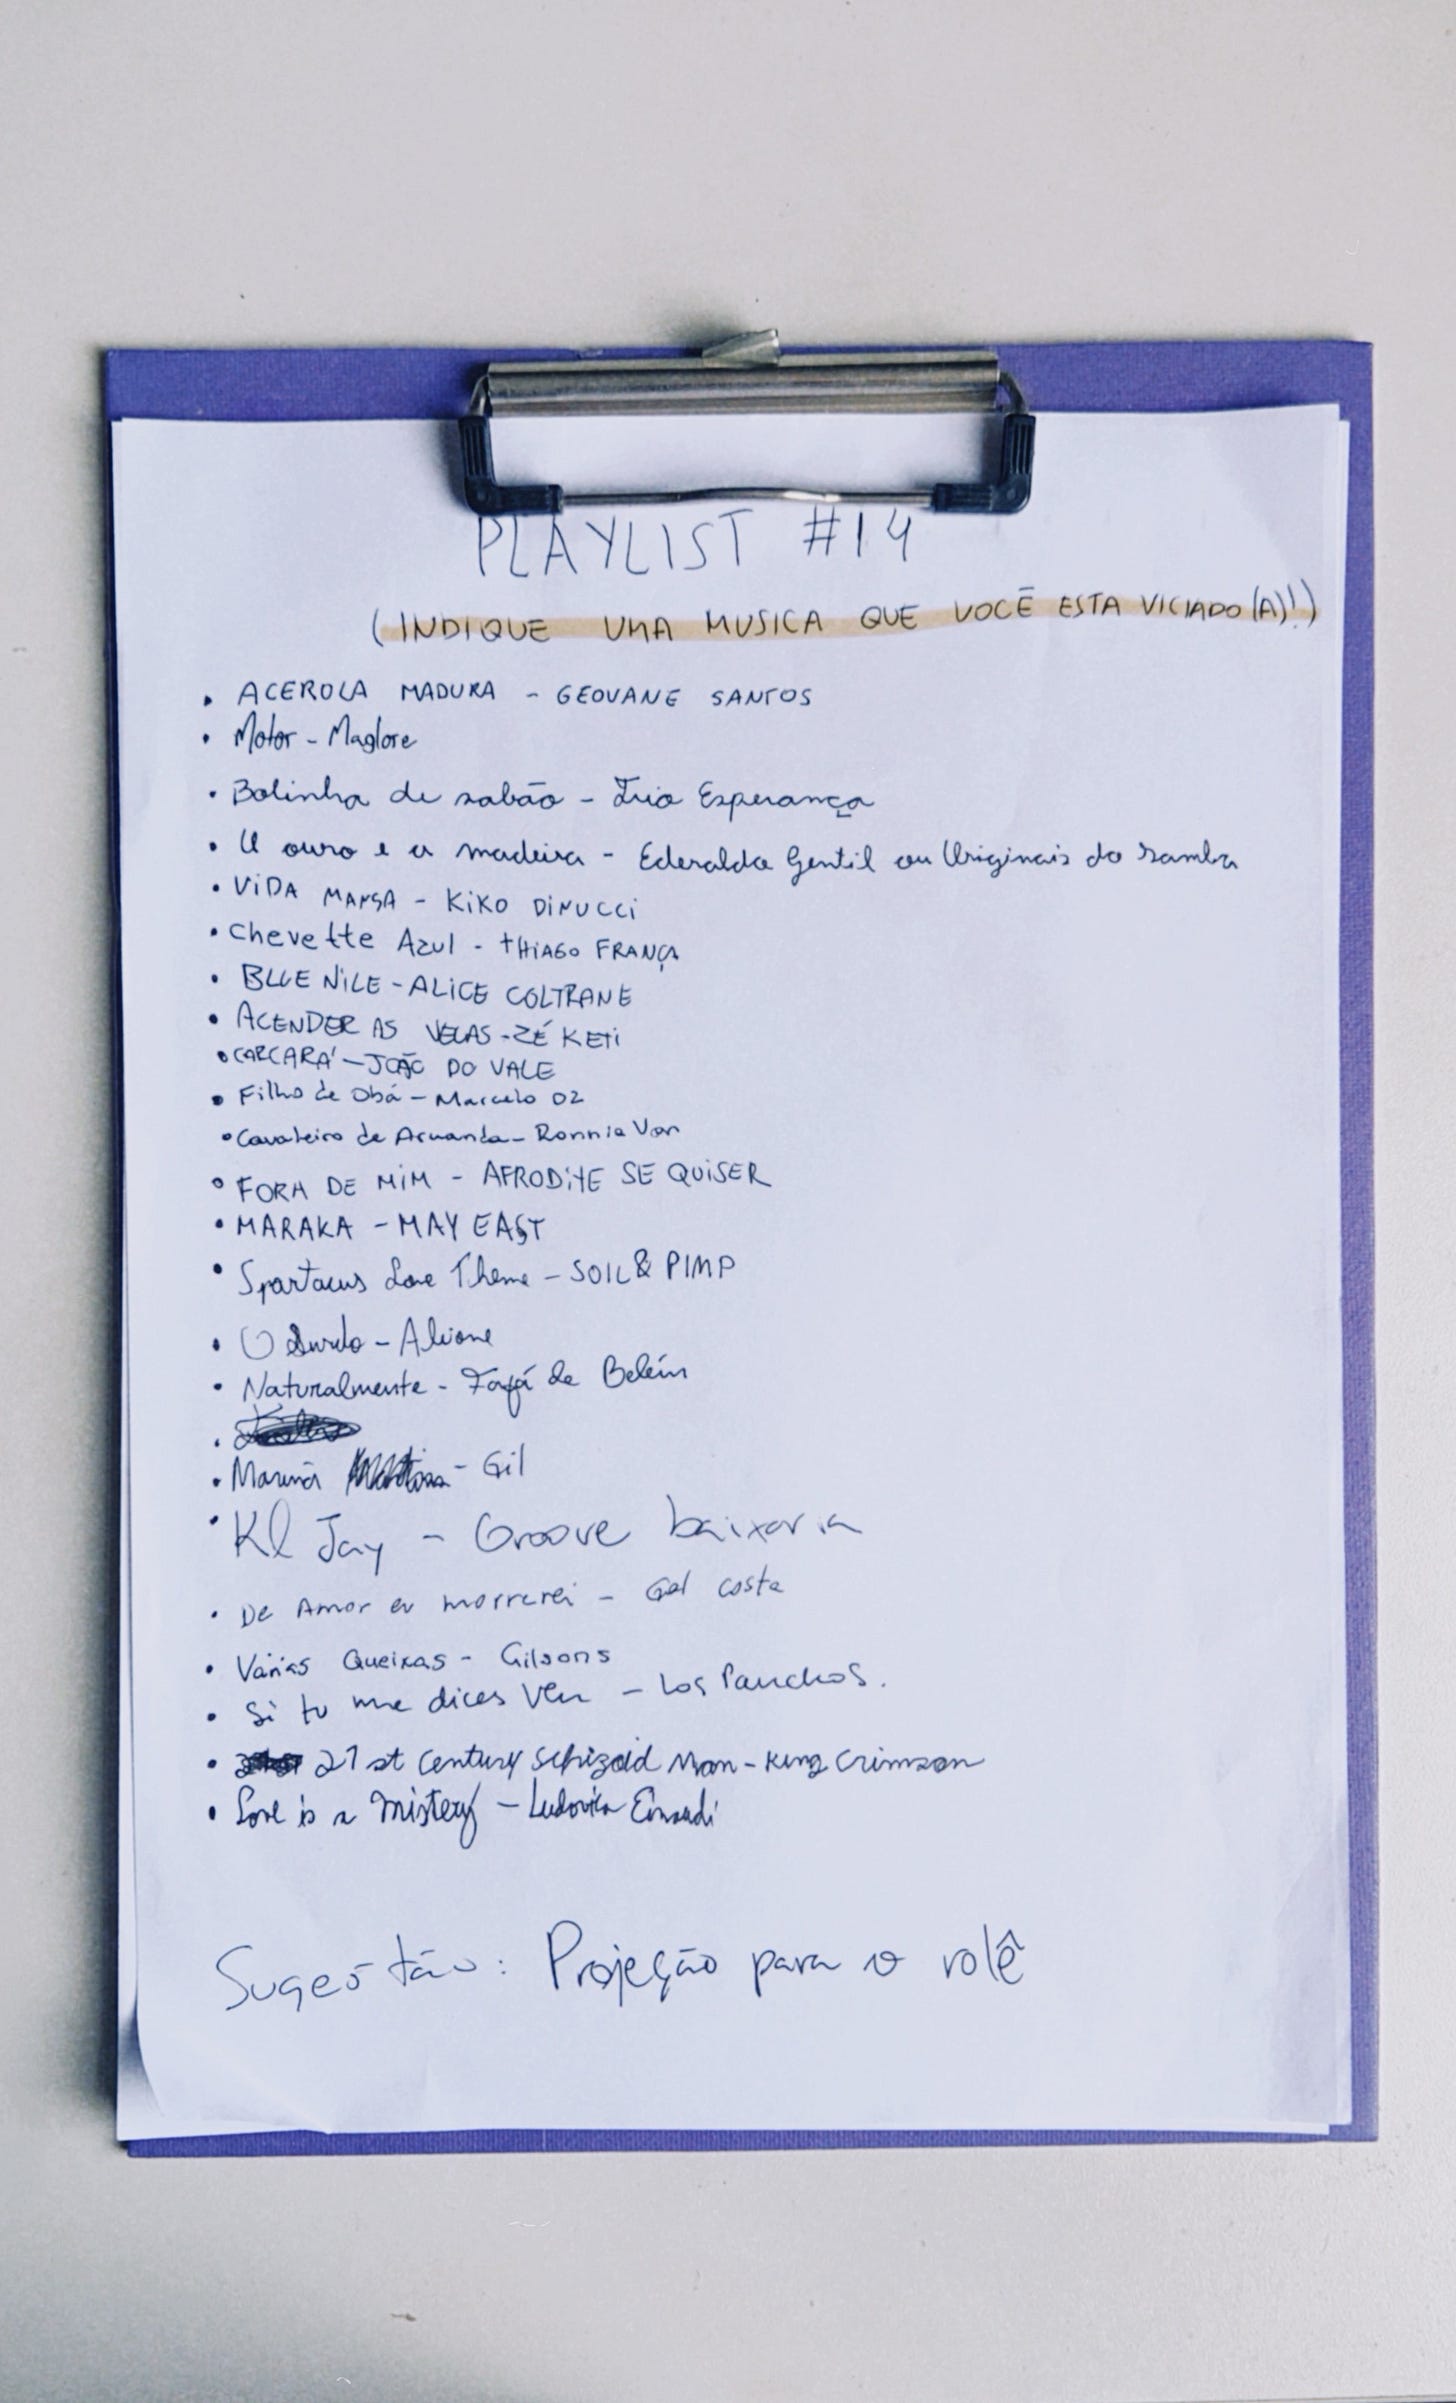 PLAYLIST #14
(INDIQUE UMA MUSICA QUE VOCÊ ESTA VICIADO(A)!)
• ACEROLA MADURA - GEOVANE SANTOS
• Motor - Maglore
• Bolinha de sabão - Trio Esperança
• O ouro e a madeira - Ederaldo Gentil ou Originais do Samba
• ViDA MANSA - KiKO DiNUCCi
• Chevette Azul - THiAGO FRANÇA
• BLUE NiLE - ALiCE COLTRANE
• ACENDER AS VELAS - ZÉ KETi
• CARCARÁ - JOÃO DO VALE
• Filho de Obá - Marcelo D2
• Cavaleiro de Aruanda - Ronnie Von
• FORA DE MiM - AFRODiTE SE QUiSER
• MARAKA - MAY EAST
• Spartacus Love Theme - SOIL & PIMP
• O Surdo - Alcione
• Naturalmente - Fafá de Belém
•
• Maruna - Gil
• Kl Jay - Groove baixaria
• De Amor eu morrerei - Gal costa
• Várias Queixas - Gilsons
• Si tu me dices Ven - Los Panchos.
• 21 st Century Schizoid Man - King Crimson
• Love is a Mistery - Ludovico Einaudi
Sugestão: Projeção para o rolê